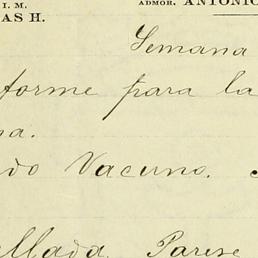 I. M.
AS H.
ADMOR. ANTONIO
Semana
forme para la
na.
do Vacuno.
llada Parese